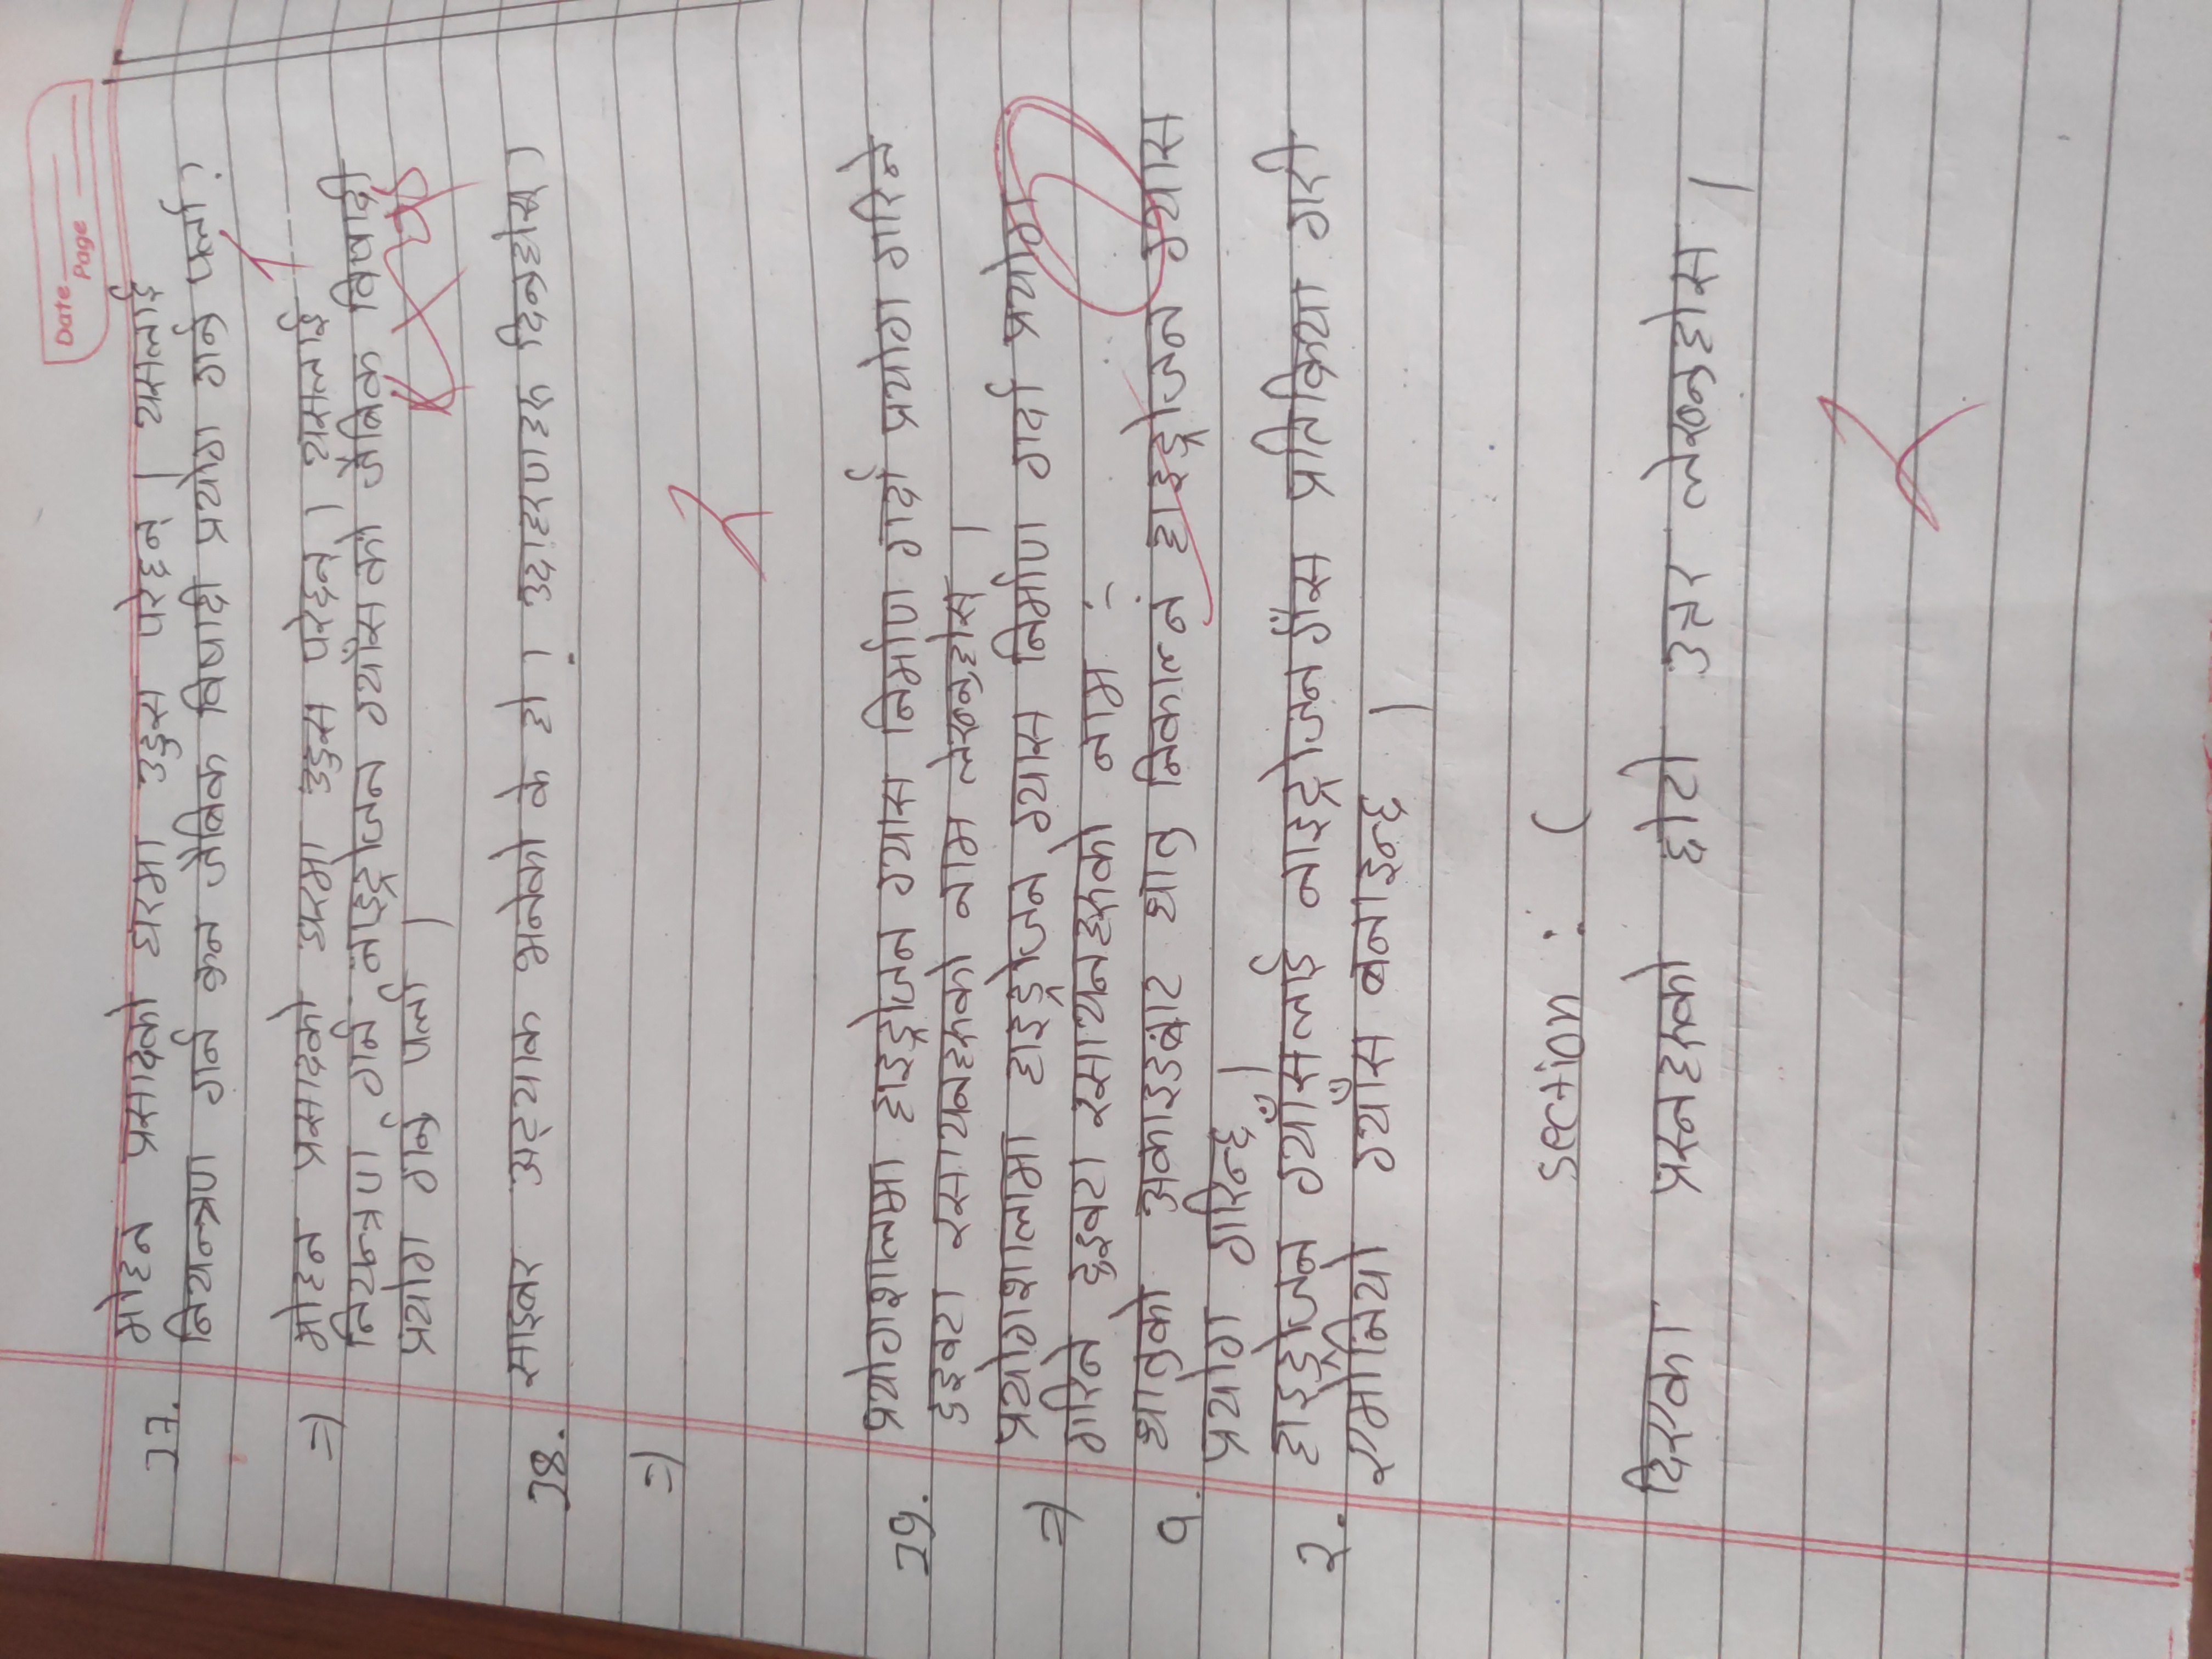 Date
Page
17. मोहन प्रसादको घरमा उडुस परेछन् । यसलाई
नियन्त्रण गर्न कुन जैबिक बिषादी प्रयोग गर्नु पर्ला ?
=) मोहन प्रसादको घरमा उडुस परेछन् । यसलाई
नियन्त्रण गर्न नाइट्रोजन ग्याँसको जैबिक बिषादी
प्रयोग गर्नु पर्ला ।
18. साइबर अट्याक भनेको के हो ? उदाहरणहरु दिनुहोस् ।
=)
19. प्रयोगशालामा हाइड्रोजन ग्यास निर्माण गर्दा प्रयोग गरिने
दुइवटा रसायनहरुको नाम लेख्नुहोस् ।
=) प्रयोगशालामा हाइड्रोजन ग्यास निर्माण गर्दा प्रयोग
गरिने दुइवटा रसायनहरुको नाम :-
१. धातुको अकाइडबाट धातु निकाल्न हाइड्रोजन ग्यास
प्रयोग गरिन्छ ।
२. हाइड्रोजन ग्याँसलाई नाइट्रोजन गैँस प्रतिक्रिया गरी
एमोनियो ग्याँस बनाइन्छ ।
section : C
दिएका प्रस्नहरुको छोटो उत्तर लेख्नुहोस ।